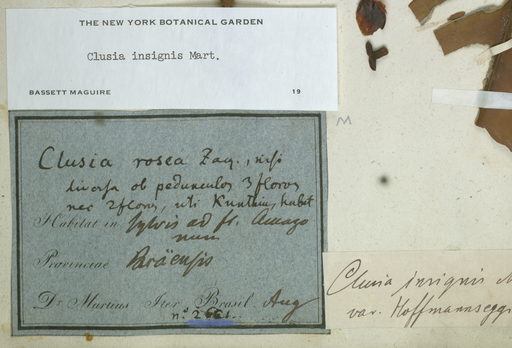 THE NEW YORK BOTANICAL GARDEN
Clusia insignis Mart.
BASSETT MAGUIRE 19
M
Clusia rosea Zaq., nisi
diversa ob pedunculos 3floros
nec 2floros, uti Kunthius, habit
Habitat in sylvis ad fl. Amazo
num
Provinciae Paraënsis
Dr. Martius Iter Brasil. Aug
n. 2661.
Clusia insignis M
var. Hoffmannseggi